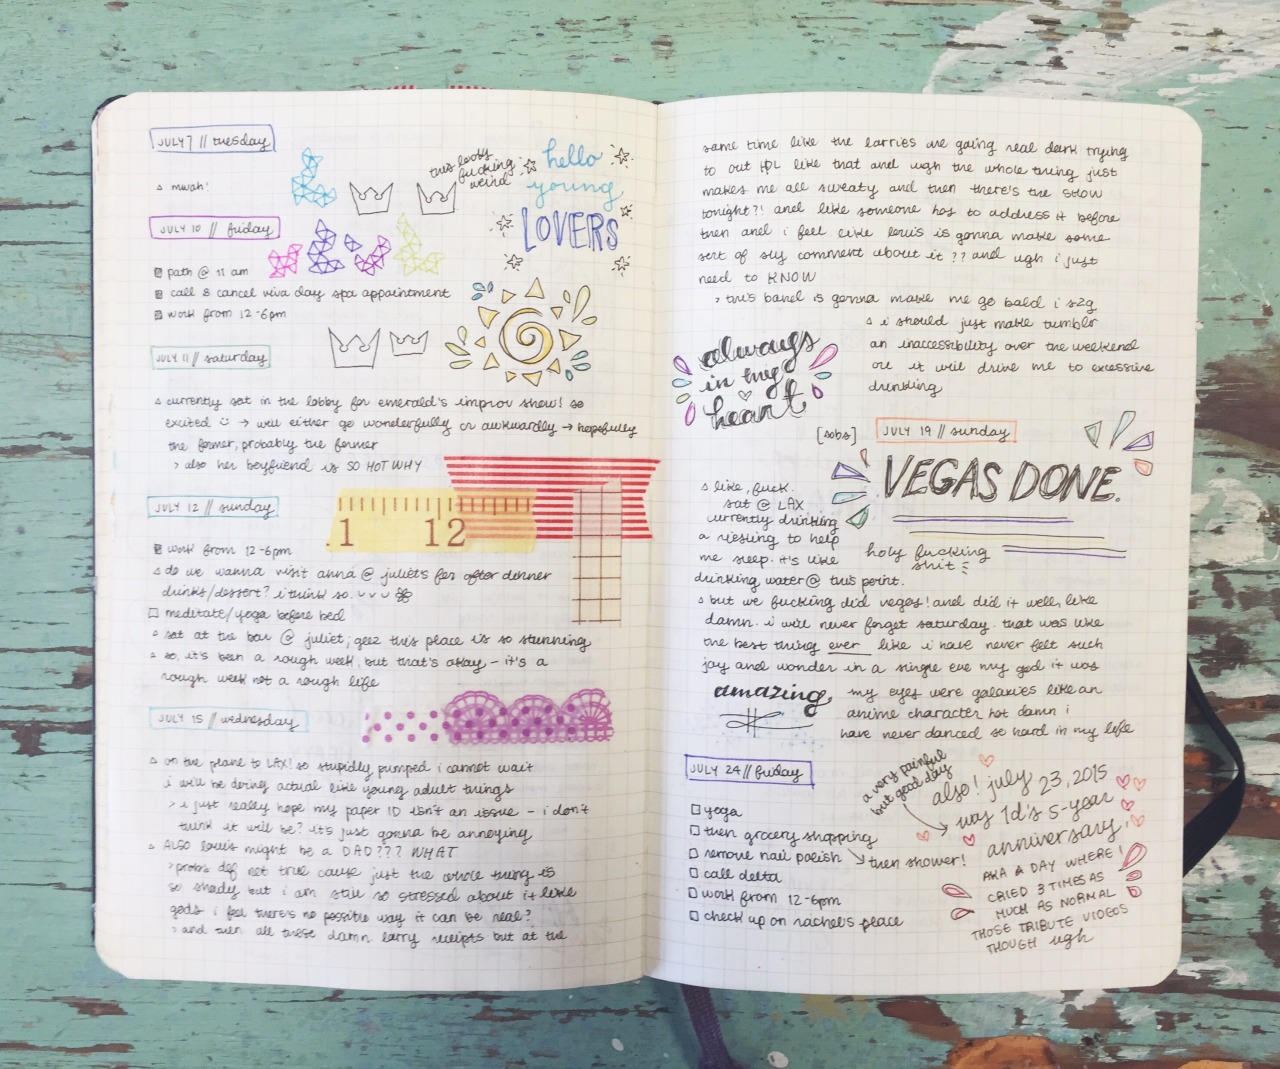 JULY 7 // tuesday
▵ mwah!
this looks
fucking
weird
hello
young
LOVERS
JULY 10 // friday
path @ 11 am
call & cancel viva day spa appointment
work from 12-6pm
JULY 11 // saturday
▵ currently sat in the lobby for emerald's improv show! so
excited → will either go wonderfully or awkwardly → hopefully
the former, probably the former
› also her boyfriend is SO HOT WHY
JULY 12 // sunday
1 12
work from 12-6pm
▵ do we wanna visit anna @ juliet's for after dinner
drinks/dessert? i think so.
meditate/yoga before bed
▵ sat at the bar @ juliet; geez this place is so stunning
▵ so, it's been a rough week, but that's okay – it's a
rough week not a rough life
JULY 15 // wednesday
▵ on the plane to LAX! so stupidly pumped i cannot wait
i will be doing actual like young adult things
› i just really hope my paper ID isn't an issue – i don't
think it will be? it's just gonna be annoying
▵ ALSO louis might be a DAD??? WHAT
› probs def not true cause just the whole thing is
so shady but i am still so stressed about it like
gods i feel there's no possible way it can be real?
› and then all these damn larry receipts but at the
same time like the larries are going real dark trying
to out HL like that and ugh the whole thing just
makes me all sweaty and then there's the show
tonight?! and like someone has to address it before
then and i feel like louis is gonna make some
sort of sly comment about it?? and ugh i just
need to KNOW
› this band is gonna make me go bald i s2g
▵ i should just make tumblr
an inaccessibility over the weekend
or it will drive me to excessive
drinking
always
in my
heart
[sobs]
JULY 19 // sunday
VEGAS DONE.
holy fucking
shit
▵ like, fuck.
sat @ LAX
currently drinking
a riesling to help
me sleep. it's like
drinking water @ this point.
▵ but we fucking did vegas! and did it well, like
damn. i will never forget saturday. that was like
the best thing ever like i have never felt such
joy and wonder in a single eve my god it was
amazing
my eyes were galaxies like an
anime character hot damn i
have never danced so hard in my life
JULY 24 // friday
a very painful
but good day
yoga
then grocery shopping
remove nail polish then shower!
call delta
work from 12-6pm
check up on rachel's place
also! july 23, 2015
was 1d's 5-year
anniversary!
AKA A DAY WHERE I
CRIED 3 TIMES AS
MUCH AS NORMAL
THOSE TRIBUTE VIDEOS
THOUGH ugh